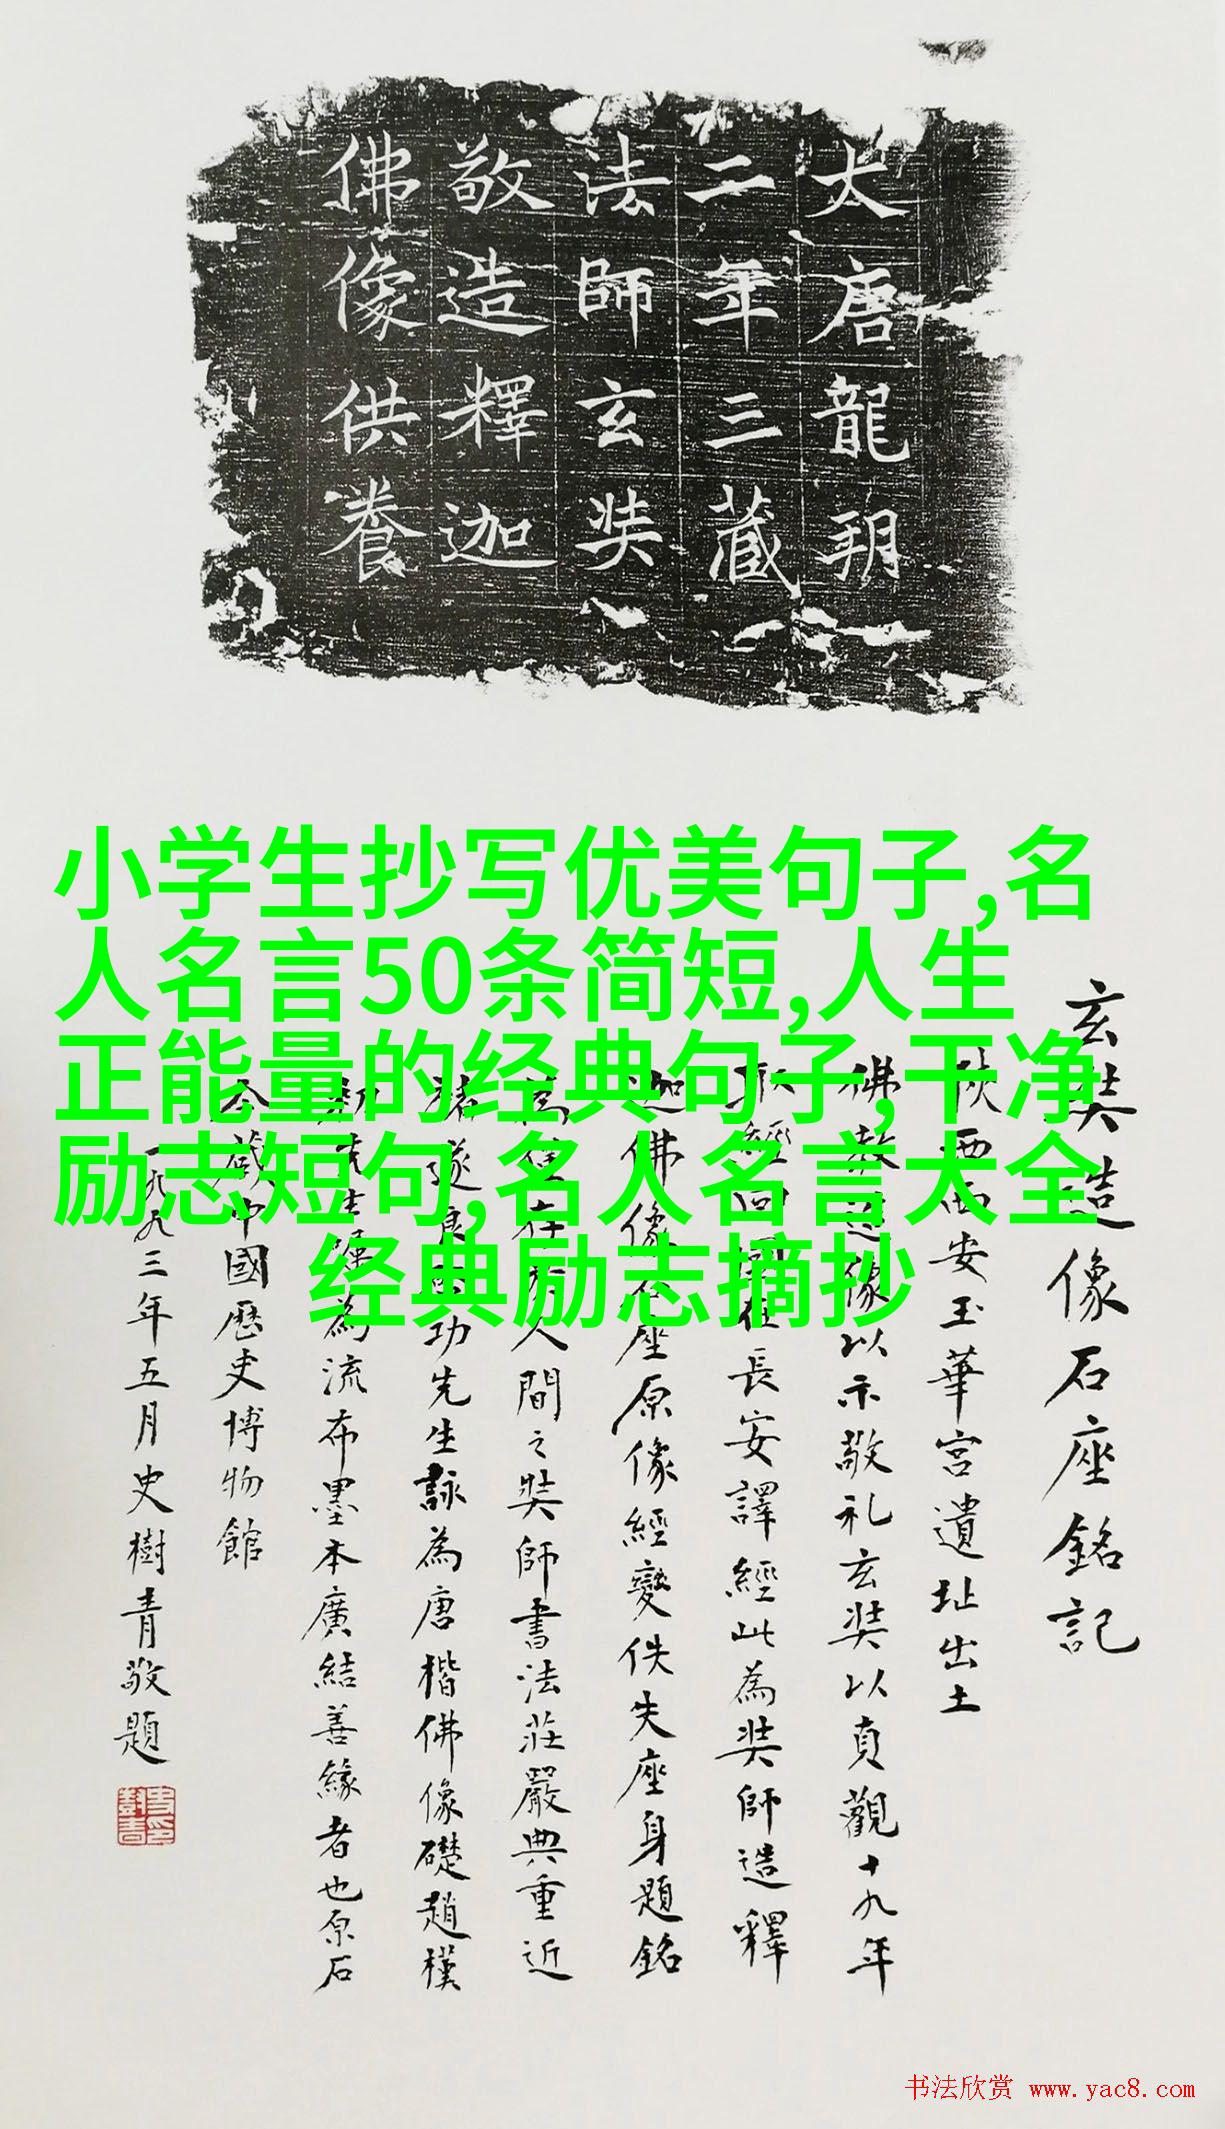 大唐龍朔
二年三藏
法師玄奘
敬造釋迦
佛像供養
小学生抄写优美句子,名
人名言50条简短,人生
正能量的经典句子,干净
励志短句,名人名言大全
经典励志摘抄
玄奘造像石座銘記
陕西西安玉華宮遺址出土
佛教造像以示敬礼玄奘以貞觀十九年
取經回國在長安譯經此為奘師造釋
迦佛像石座原像經變佚失座身題銘
人間之奘師書法莊嚴典重近
褚遂良功先生詠為唐楷佛像礎趙樸
初先生為流布墨本廣結善緣者也原石
今藏中國歷史博物館
一九九三年五月史樹青敬題
书法欣赏 www.yac8.com